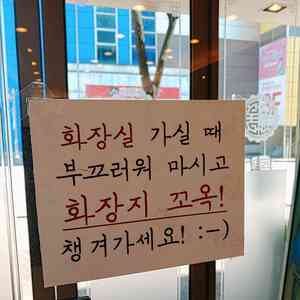 화장실 가실 때
부끄러워 마시고
화장지 꼬옥!
챙겨가세요! :-)